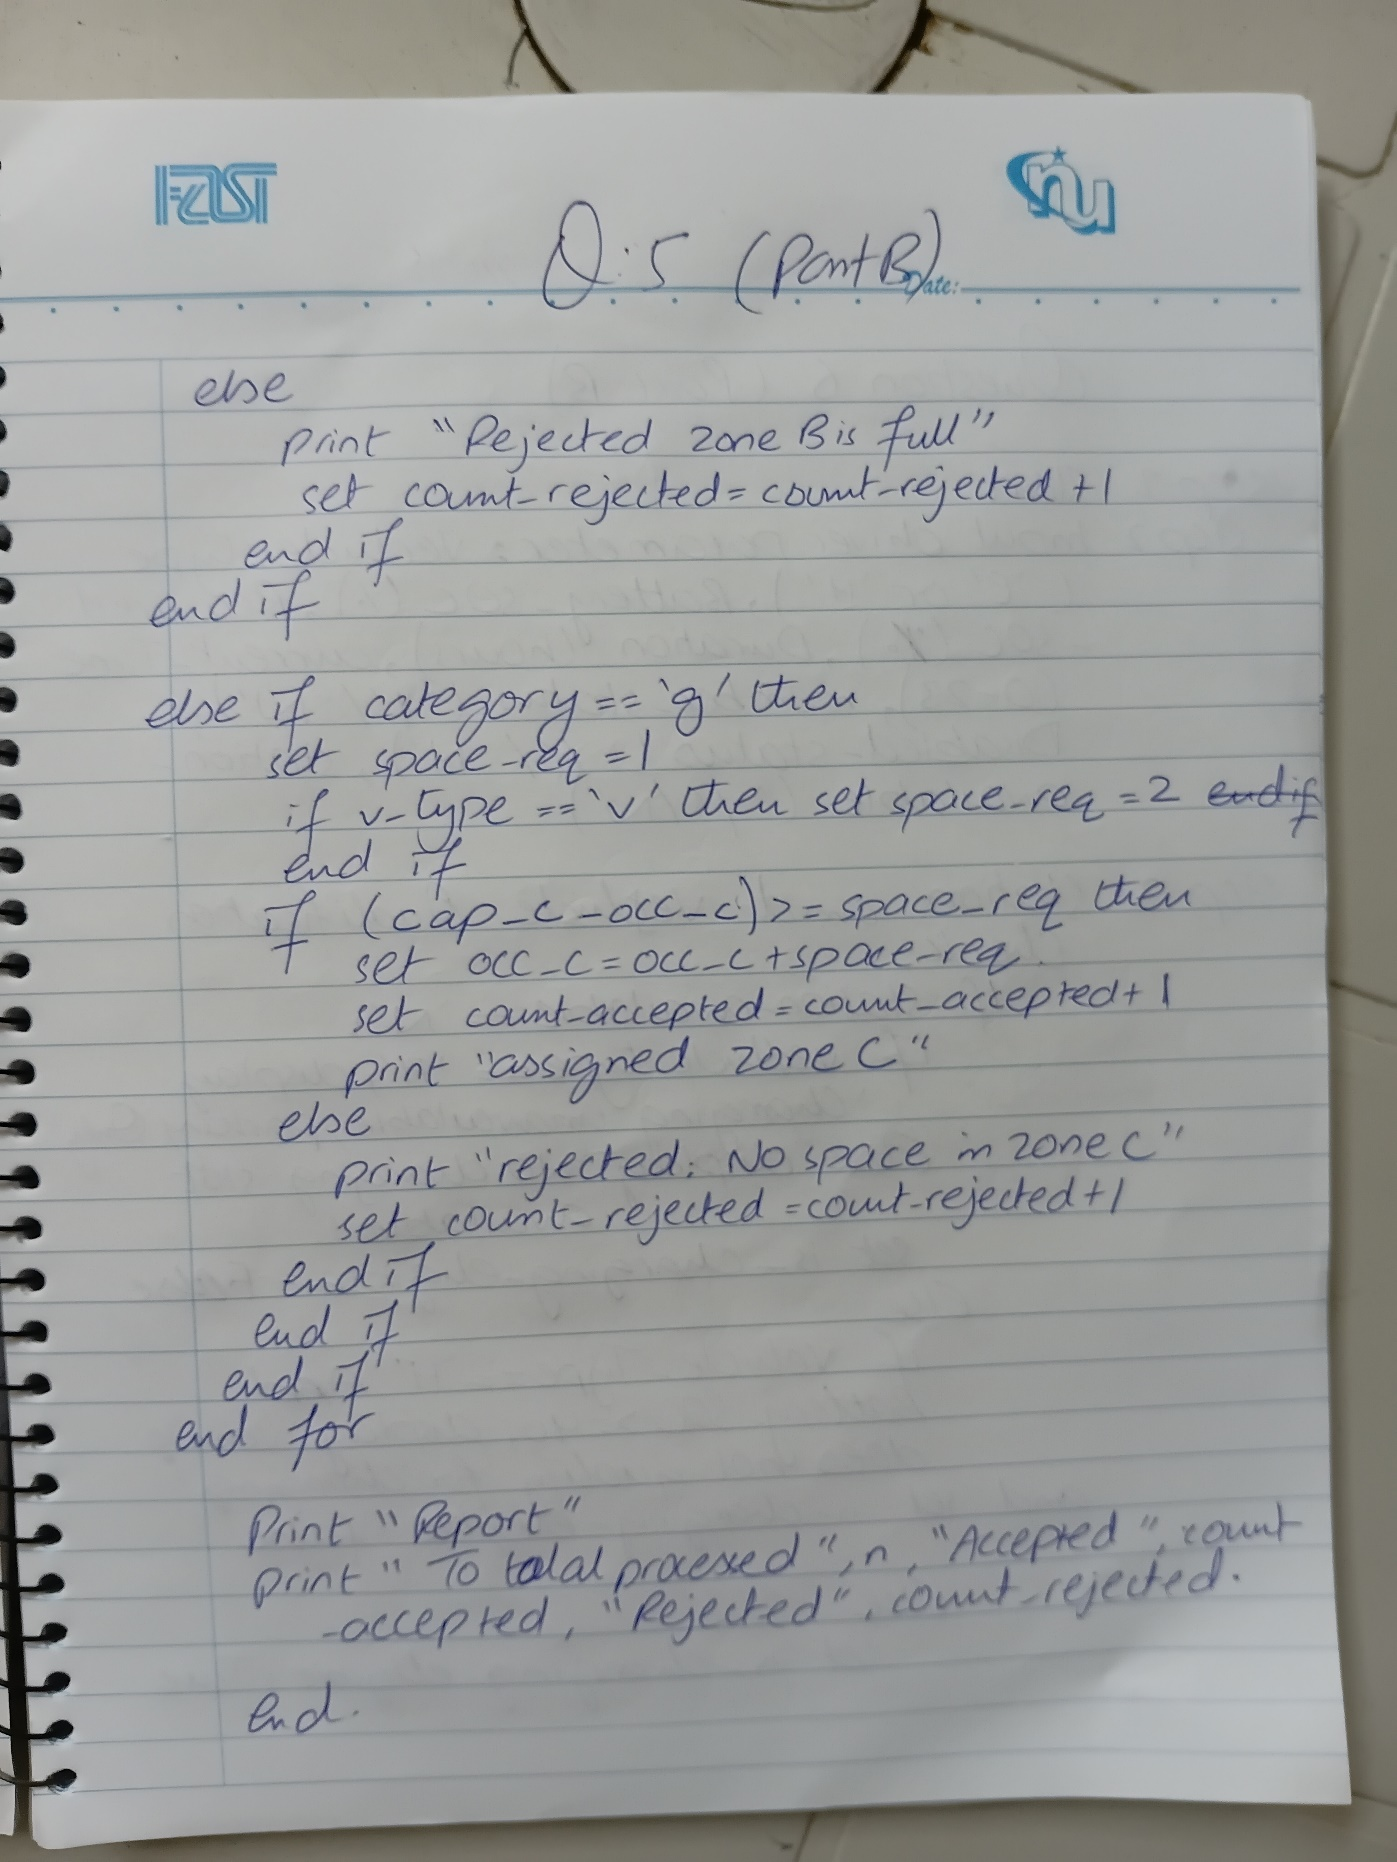 FAST
nu
Q:5 (Part B)
Date:
else
print "Rejected zone B is full"
set count-rejected = count-rejected +1
end if
end if
else if category == 'g' then
set space-req = 1
if v-type == 'v' then set space-req = 2 endif
end if
if (cap-c-occ-c) >= space-req then
set occ-c = occ-c + space-req.
set count-accepted = count-accepted + 1
print "assigned zone C"
else
print "rejected: No space in zone C"
set count-rejected = count-rejected +1
end if
end if
end if
end for
Print "Report"
print "To total processed", n, "Accepted", count
-accepted, "Rejected", count-rejected.
end.